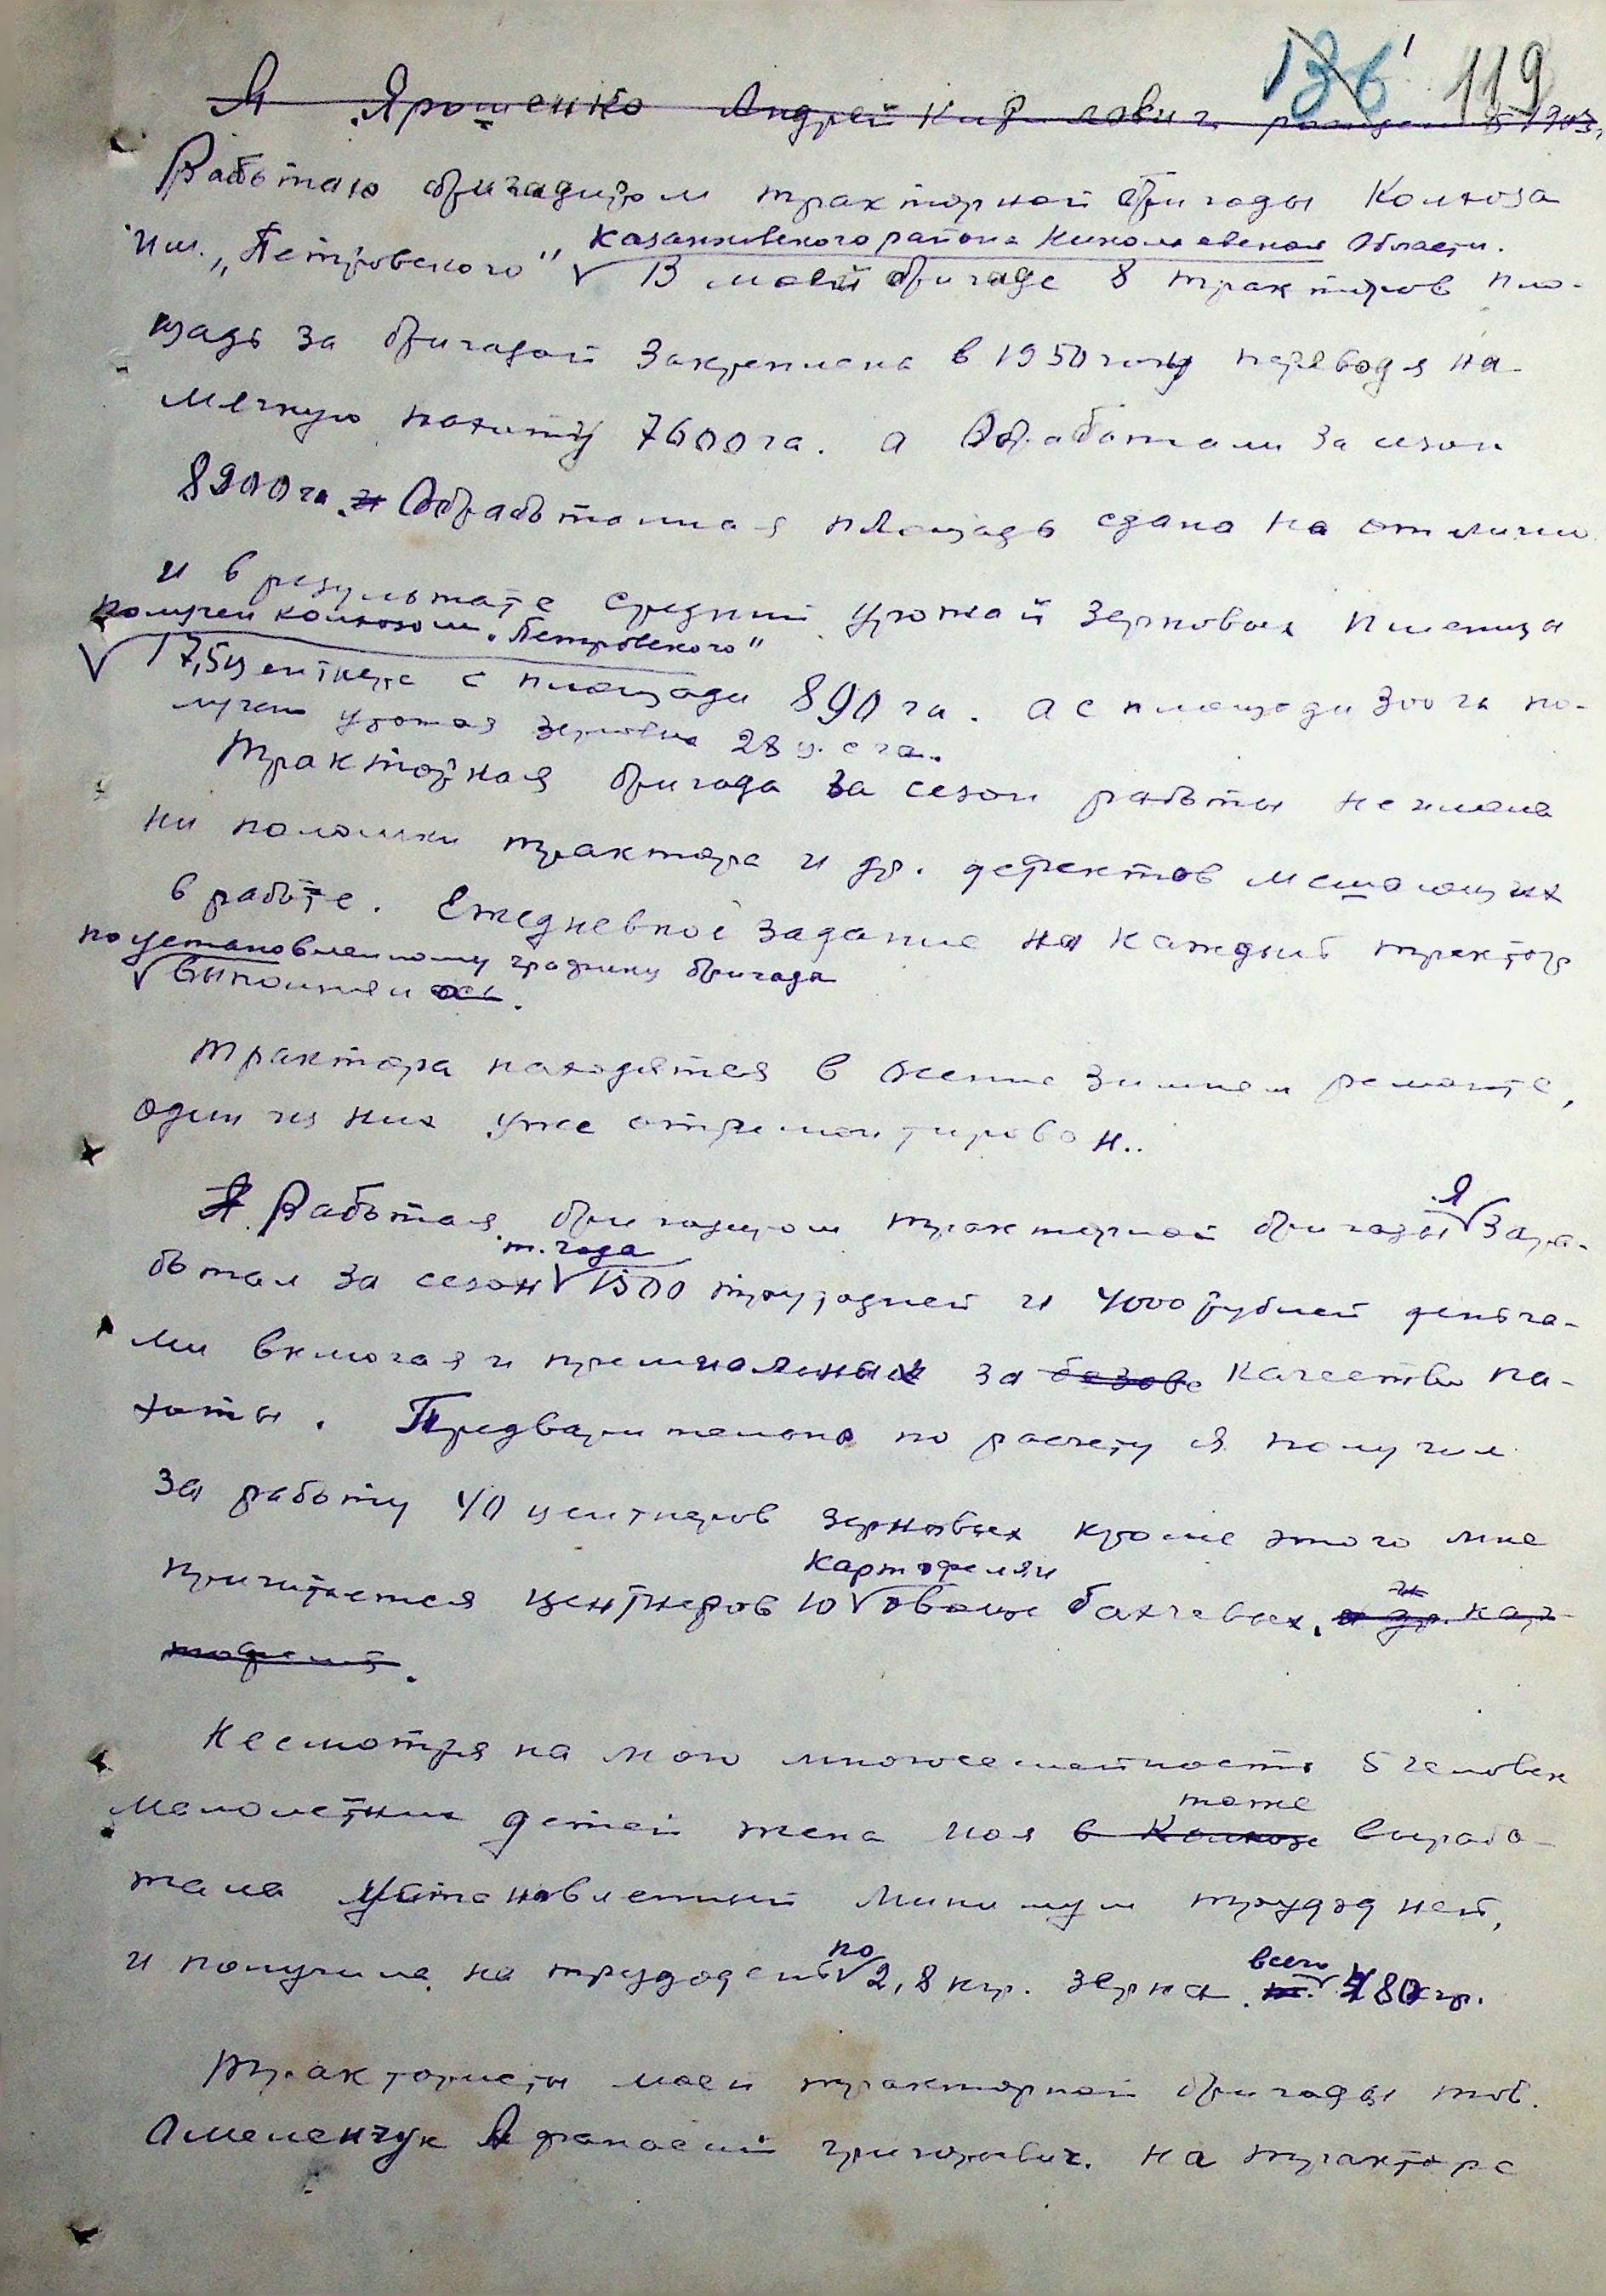 136 119
Я Ярошенко Андрей Кирилович рожден. в 1903
Работаю бригадиром тракторной бригады Колхоза
Казанковского района Николаевской Области.
им. „Петровского" √ В моей бригаде 8 тракторов пло-
щадь за бригадой закреплена в 1950 году переводя на
мягкую пахиту 7600 га. а Обработали за сезон
8900 га. и Обработанная площадь сдана на отлично
и в результате средний урожай зерновых пшеницы
получен колхозом „Петровского"
√ 17,5 центнера с площади 890 га. а с площади 300 га по-
лучен урожая зерновых 28 ц. с га.
Тракторная бригада за сезон работы не имела
ни поломки трактора и др. дефектов мешающих
в работе. Ежедневное задание на каждый трактор
по установленному графику бригада
√ выполняла ось.
Трактора находятся в осенне зимнем ремонте,
один из них уже отремонтирован..
Я Работая бригадиром тракторной бригады √ Я зара-
ботал за сезон √ т. года 1500 трудодней и 4000 рублей деньга-
ми включая и премиальных за качество па-
хоты. Предварительно по расчету я получил
за работу 40 центнеров зерновых кроме этого мне
картофеля и
причитается центнеров 10 √ овоще бахчевых. и др. кар-
тофеля.
Несмотря на мою многосемейность 5 человек
тоже
малолетних детей жена моя в Колхозе вырабо-
тала установленный минимум трудодней,
и получила на трудодень √ по 2,8 кгр. зерна. всего 480 кгр.
Трактористы моей тракторной бригады тов.
Амеленчук Афанасий григорович. на тракторе